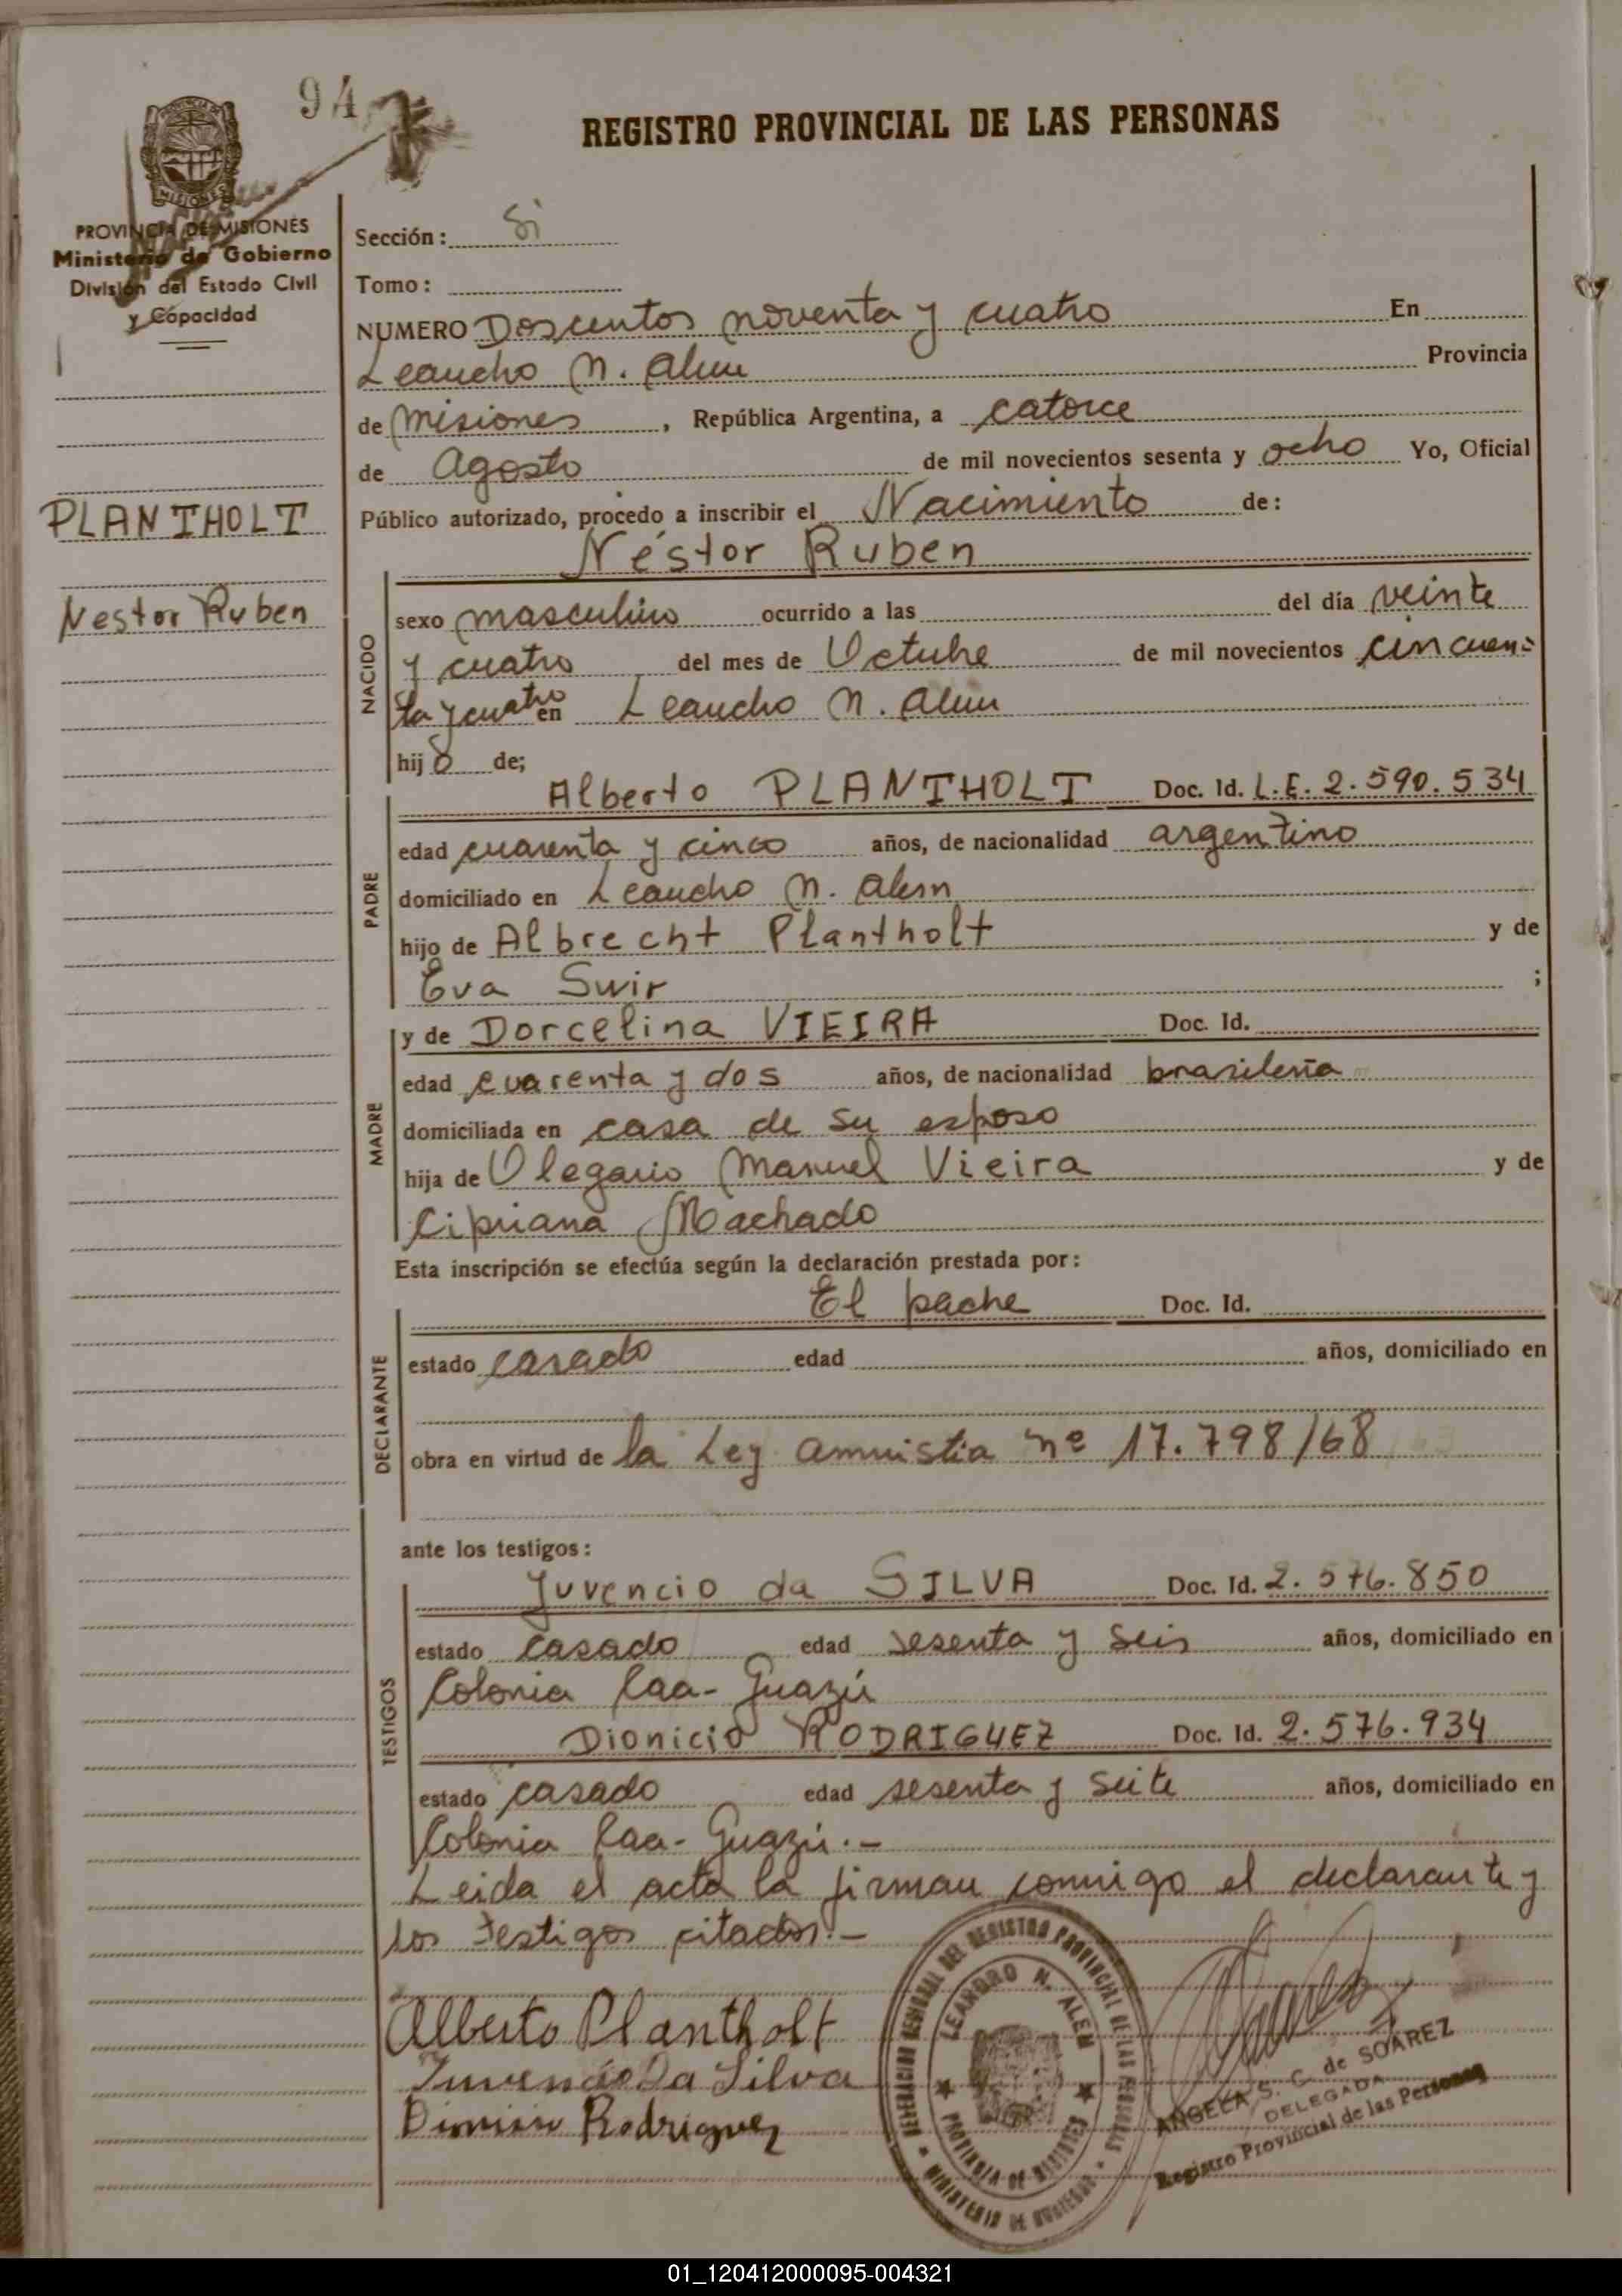 94
REGISTRO PROVINCIAL DE LAS PERSONAS
PROVINCIA DE MISIONES
Ministerio de Gobierno
División del Estado Civil
y Capacidad
PLANTHOLT
Nestor Ruben
Sección:
Tomo:
NUMERO Doscientos noventa y cuatro En
Leandro N. Alem Provincia
de Misiones, República Argentina, a catorce
de Agosto de mil novecientos sesenta y ocho Yo, Oficial
Público autorizado, procedo a inscribir el Nacimiento de:
Néstor Ruben
NACIDO
sexo masculino ocurrido a las del día veinte
y cuatro del mes de Octubre de mil novecientos cincuen=
ta y cuatro en Leandro N. Alem
hijo de;
PADRE
Alberto PLANTHOLT Doc. Id. L.E. 2.590.534
edad cuarenta y cinco años, de nacionalidad argentino
domiciliado en Leandro N. Alem
hijo de Albrecht Plantholt y de
Eva Swir ;
MADRE
y de Dorcelina VIEIRA Doc. Id.
edad cuarenta y dos años, de nacionalidad brasileña
domiciliada en casa de su esposo
hija de Olegario Manuel Vieira y de
Cipriana Machado
Esta inscripción se efectúa según la declaración prestada por:
DECLARANTE
El padre Doc. Id.
estado casado edad años, domiciliado en
obra en virtud de la Ley amnistia nº 17.798/68
ante los testigos:
TESTIGOS
Juvencio da SILVA Doc. Id. 2.576.850
estado casado edad sesenta y seis años, domiciliado en
Colonia Caa-Guazú
Dionicio RODRIGUEZ Doc. Id. 2.576.934
estado casado edad sesenta y seite años, domiciliado en
Colonia Caa-Guazú.-
Leida el acta la firman conmigo el declarante y
los testigos citados.-
Alberto Plantholt
Juvencio Da Silva
Rodriguez
LEANDRO N. ALEM
PROVINCIA DE MISIONES
ANGELA S. C. de SOAREZ
DELEGADA
Registro Provincial de las Personas
01_120412000095-004321